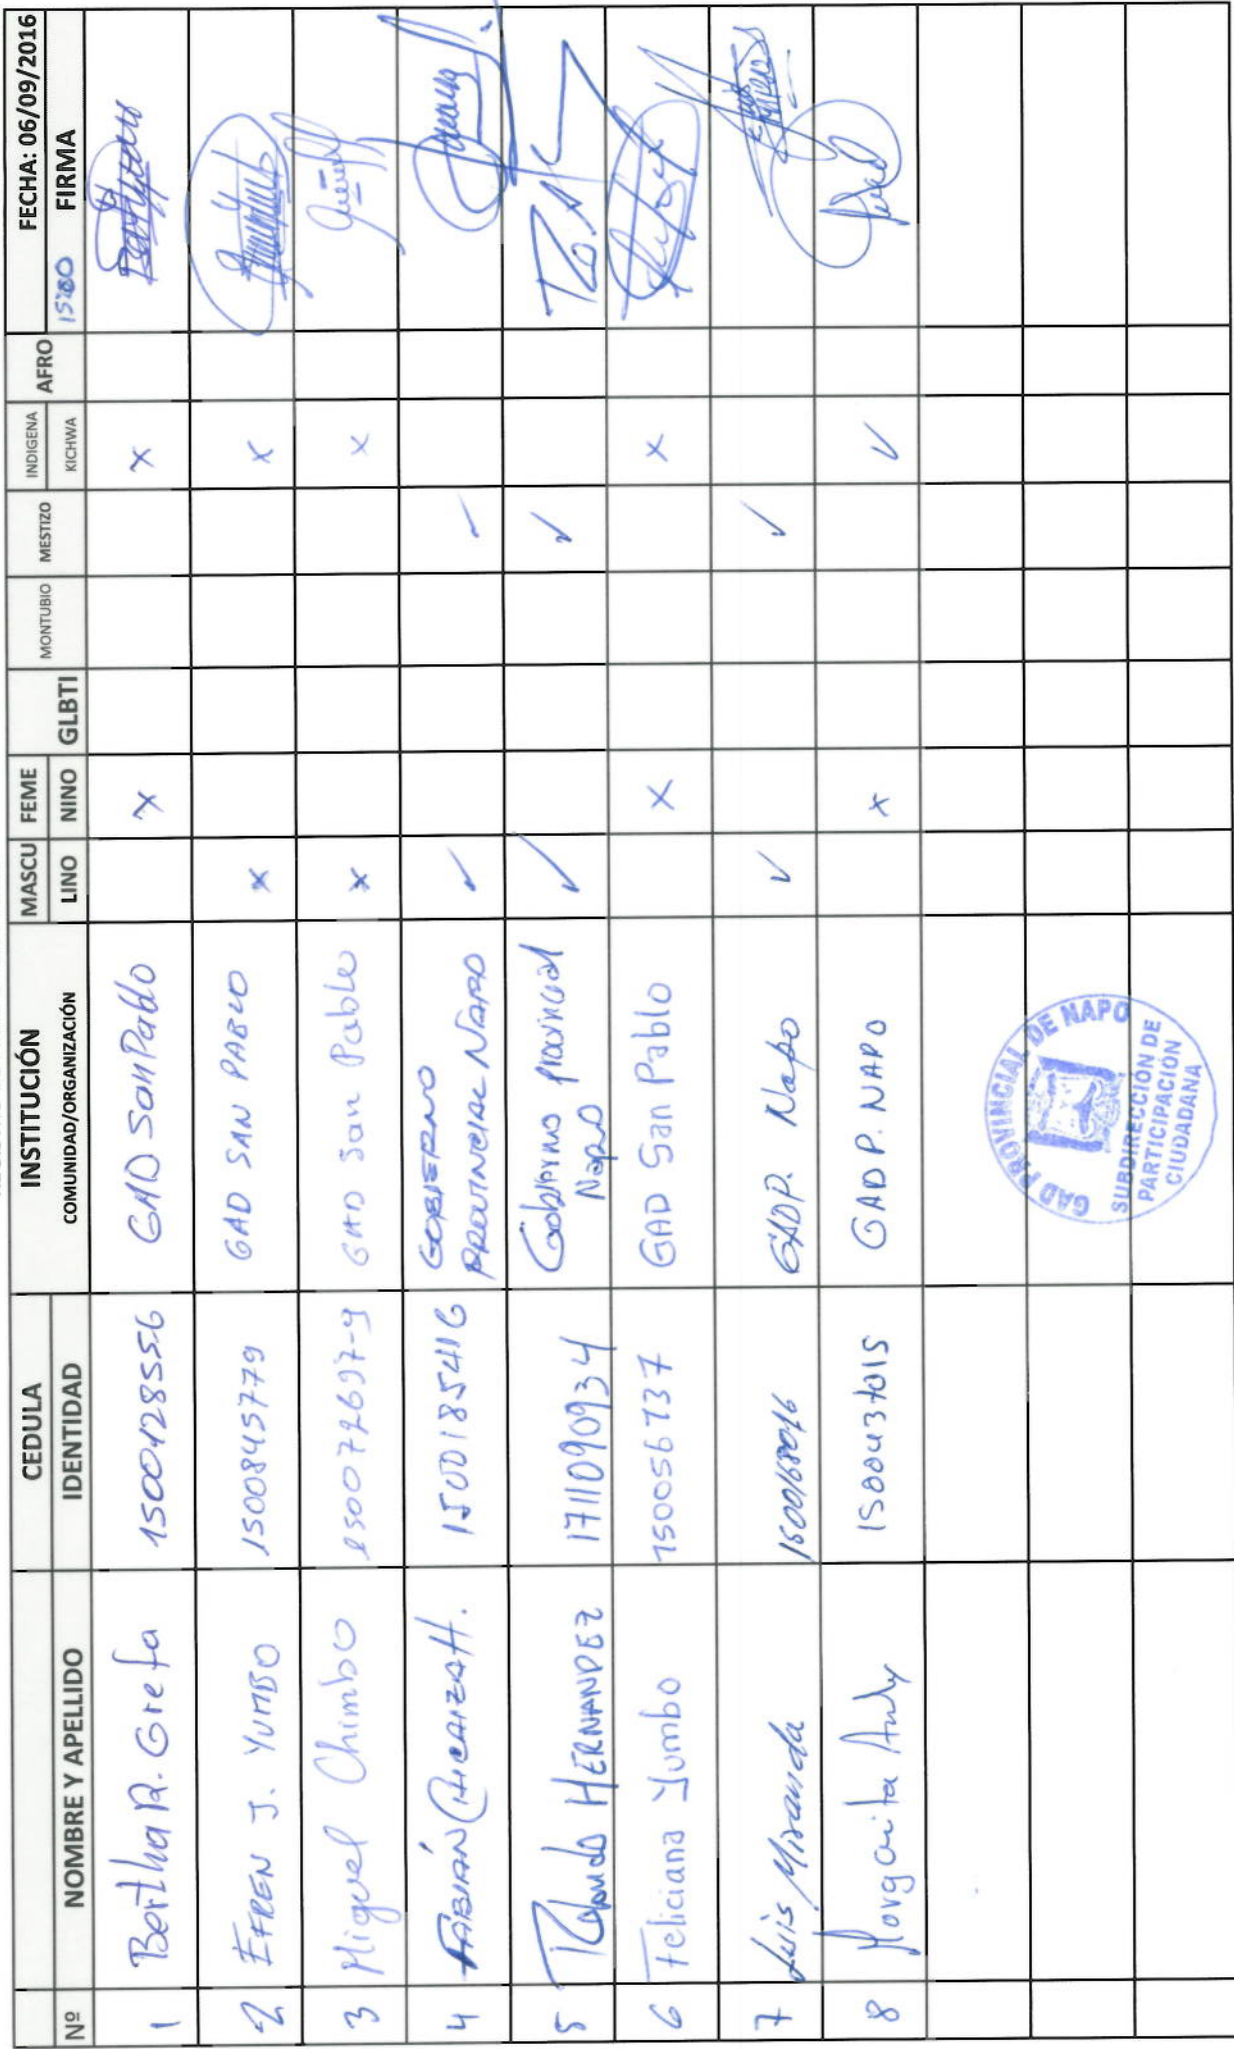 FECHA: 06/09/2016
Nº NOMBRE Y APELLIDO CEDULA IDENTIDAD INSTITUCIÓN COMUNIDAD/ORGANIZACIÓN MASCU LINO FEME NINO GLBTI MONTUBIO MESTIZO INDIGENA KICHWA AFRO 15:00 FIRMA
1 Bertha R. Grefa 1500428556 GAD San Pablo x x
2 EFREN J. YUMBO 1500845779 GAD SAN PABLO x x
3 Miguel Chimbo 150072697-9 GAD San Pablo x x
4 FABIÁN CHICAIZA H. 1500185416 GOBIERNO PROVINCIAL NAPO ✓ ✓
5 Rolando HERNANDEZ 1711090934 Gobierno provincial Napo ✓ ✓
6 Feliciana Yumbo 150056737 GAD San Pablo x x
7 Luis Miranda GADP. Napo ✓ ✓
8 Margarita Andy 1500437015 GADP. NAPO x ✓
GAD PROVINCIAL DE NAPO
SUBDIRECCIÓN DE
PARTICIPACIÓN
CIUDADANA